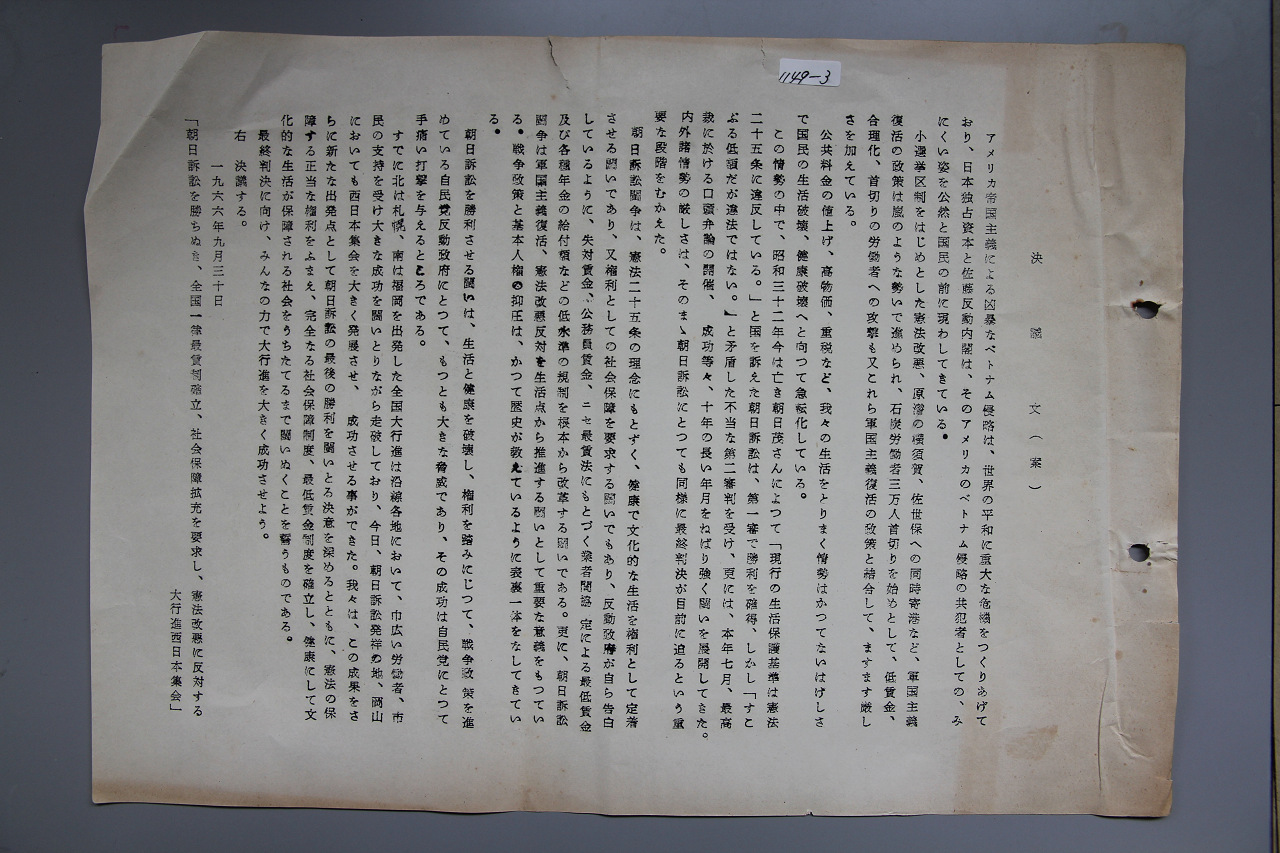 1149-3
決議文（案）
アメリカ帝国主義による凶暴なベトナム侵略は、世界の平和に重大な危機をつくりあげて
おり、日本独占資本と佐藤反動内閣は、そのアメリカのベトナム侵略の共犯者としての、み
にくい姿を公然と国民の前に現わしてきている。
小選挙区制をはじめとした憲法改悪、原潜の横須賀、佐世保への同時寄港など、軍国主義
復活の政策は嵐のような勢いで進められ、石炭労働者三万人首切りを始めとして、低賃金、
合理化、首切りの労働者への攻撃も又これら軍国主義復活の政策と結合して、ますます厳し
さを加えている。
公共料金の値上げ、高物価、重税など、我々の生活をとりまく情勢はかつてないはげしさ
で国民の生活破壊、健康破壊へと向つて急転化している。
この情勢の中で、昭和三十二年今は亡き朝日茂さんによつて「現行の生活保護基準は憲法
二十五条に違反している。」と国を訴えた朝日訴訟は、第一審で勝利を確得、しかし「すこ
ぶる低額だが違法ではない。」と矛盾した不当な第二審判を受け、更には、本年七月、最高
裁に於ける口頭弁論の開催、成功等々、十年の長い年月をねばり強く闘いを展開してきた。
内外諸情勢の厳しさは、そのまゝ朝日訴訟にとつても同様に最終判決が目前に迫るという重
要な段階をむかえた。
朝日訴訟闘争は、憲法二十五条の理念にもとずく、健康で文化的な生活を権利として定着
させる闘いであり、又権利としての社会保障を要求する闘いでもあり、反動政府が自ら告白
しているように、失対賃金、公務員賃金、ニセ最賃法にもとづく業者間協定による最低賃金
及び各種年金の給付額などの低水準の規制を根本から改革する闘いである。更に、朝日訴訟
闘争は軍国主義復活、憲法改悪反対を生活点から推進する闘いとして重要な意義をもつてい
る。戦争政策と基本人権の抑圧は、かつて歴史が教えているように表裏一体をなしてきてい
る。
朝日訴訟を勝利させる闘いは、生活と健康を破壊し、権利を踏みにじつて、戦争政策を進
めている自民党反動政府にとつて、もつとも大きな脅威であり、その成功は自民党にとつて
手痛い打撃を与えるところである。
すでに北は札幌、南は福岡を出発した全国大行進は沿線各地において、巾広い労働者、市
民の支持を受け大きな成功を闘いとりながら走破しており、今日、朝日訴訟発祥の地、岡山
においても西日本集会を大きく発展させ、成功させる事ができた。我々は、この成果をさ
らに新たな出発点として朝日訴訟の最後の勝利を闘いとる決意を深めるとともに、憲法の保
障する正当な権利をふまえ、完全なる社会保障制度、最低賃金制度を確立し、健康にして文
化的な生活が保障される社会をうちたてるまで闘いぬくことを誓うものである。
最終判決に向け、みんなの力で大行進を大きく成功させよう。
右　決議する。
一九六六年九月三十日
「朝日訴訟を勝ちぬき、全国一律最賃制確立、社会保障拡充を要求し、憲法改悪に反対する
大行進西日本集会」